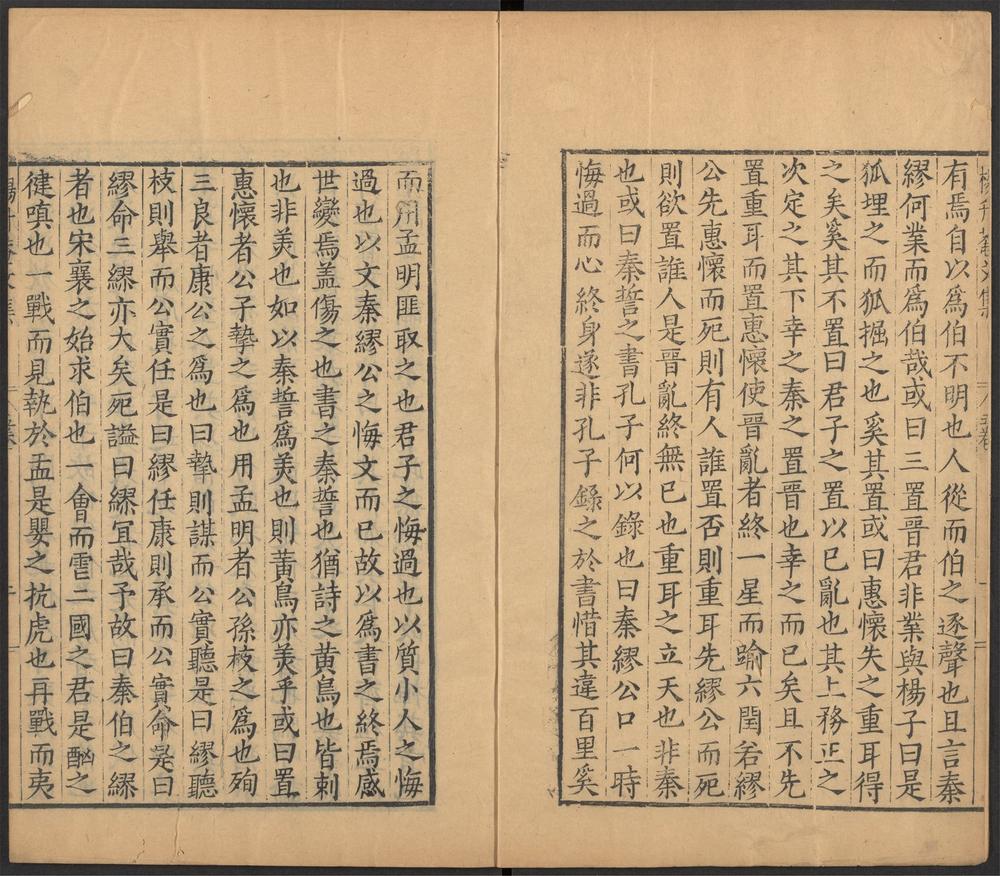 有焉自以爲伯不明也人從而伯之逐聲也且言秦
繆何業而爲伯哉或曰三置晉君非業與楊子曰是
狐埋之而狐掘之也奚其置或曰惠懷失之重耳得
之矣奚其不置曰君子之置以已亂也其上務正之
次定之其下幸之秦之置晉也幸之而已矣且不先
置重耳而置惠懷使晉亂者終一星而踰六閏若繆
公先惠懷而死則有人誰置否則重耳先繆公而死
則欲置誰人是晉亂終無已也重耳之立天也非秦
也或曰秦誓之書孔子何以錄也曰秦繆公口一時
悔過而心終身遂非孔子錄之於書惜其違百里奚
而用孟明匪取之也君子之悔過也以質小人之悔
過也以文秦繆公之悔文而已故以爲書之終焉感
世變焉盖傷之也書之秦誓也猶詩之黄鳥也皆刺
也非美也如以秦誓爲美也則黃鳥亦美乎或曰置
惠懷者公子摯之爲也用孟明者公孫枝之爲也殉
三良者康公之爲也曰摯則謀而公實聽是曰繆聽
枝則舉而公實任是曰繆任康則承而公實命是曰
繆命三繆亦大矣死謚曰繆宜哉予故曰秦伯之繆
者也宋襄之始求伯也一會而虐二國之君是酗之
徤嗔也一戰而見執於盂是嬰之抗虎也再戰而夷